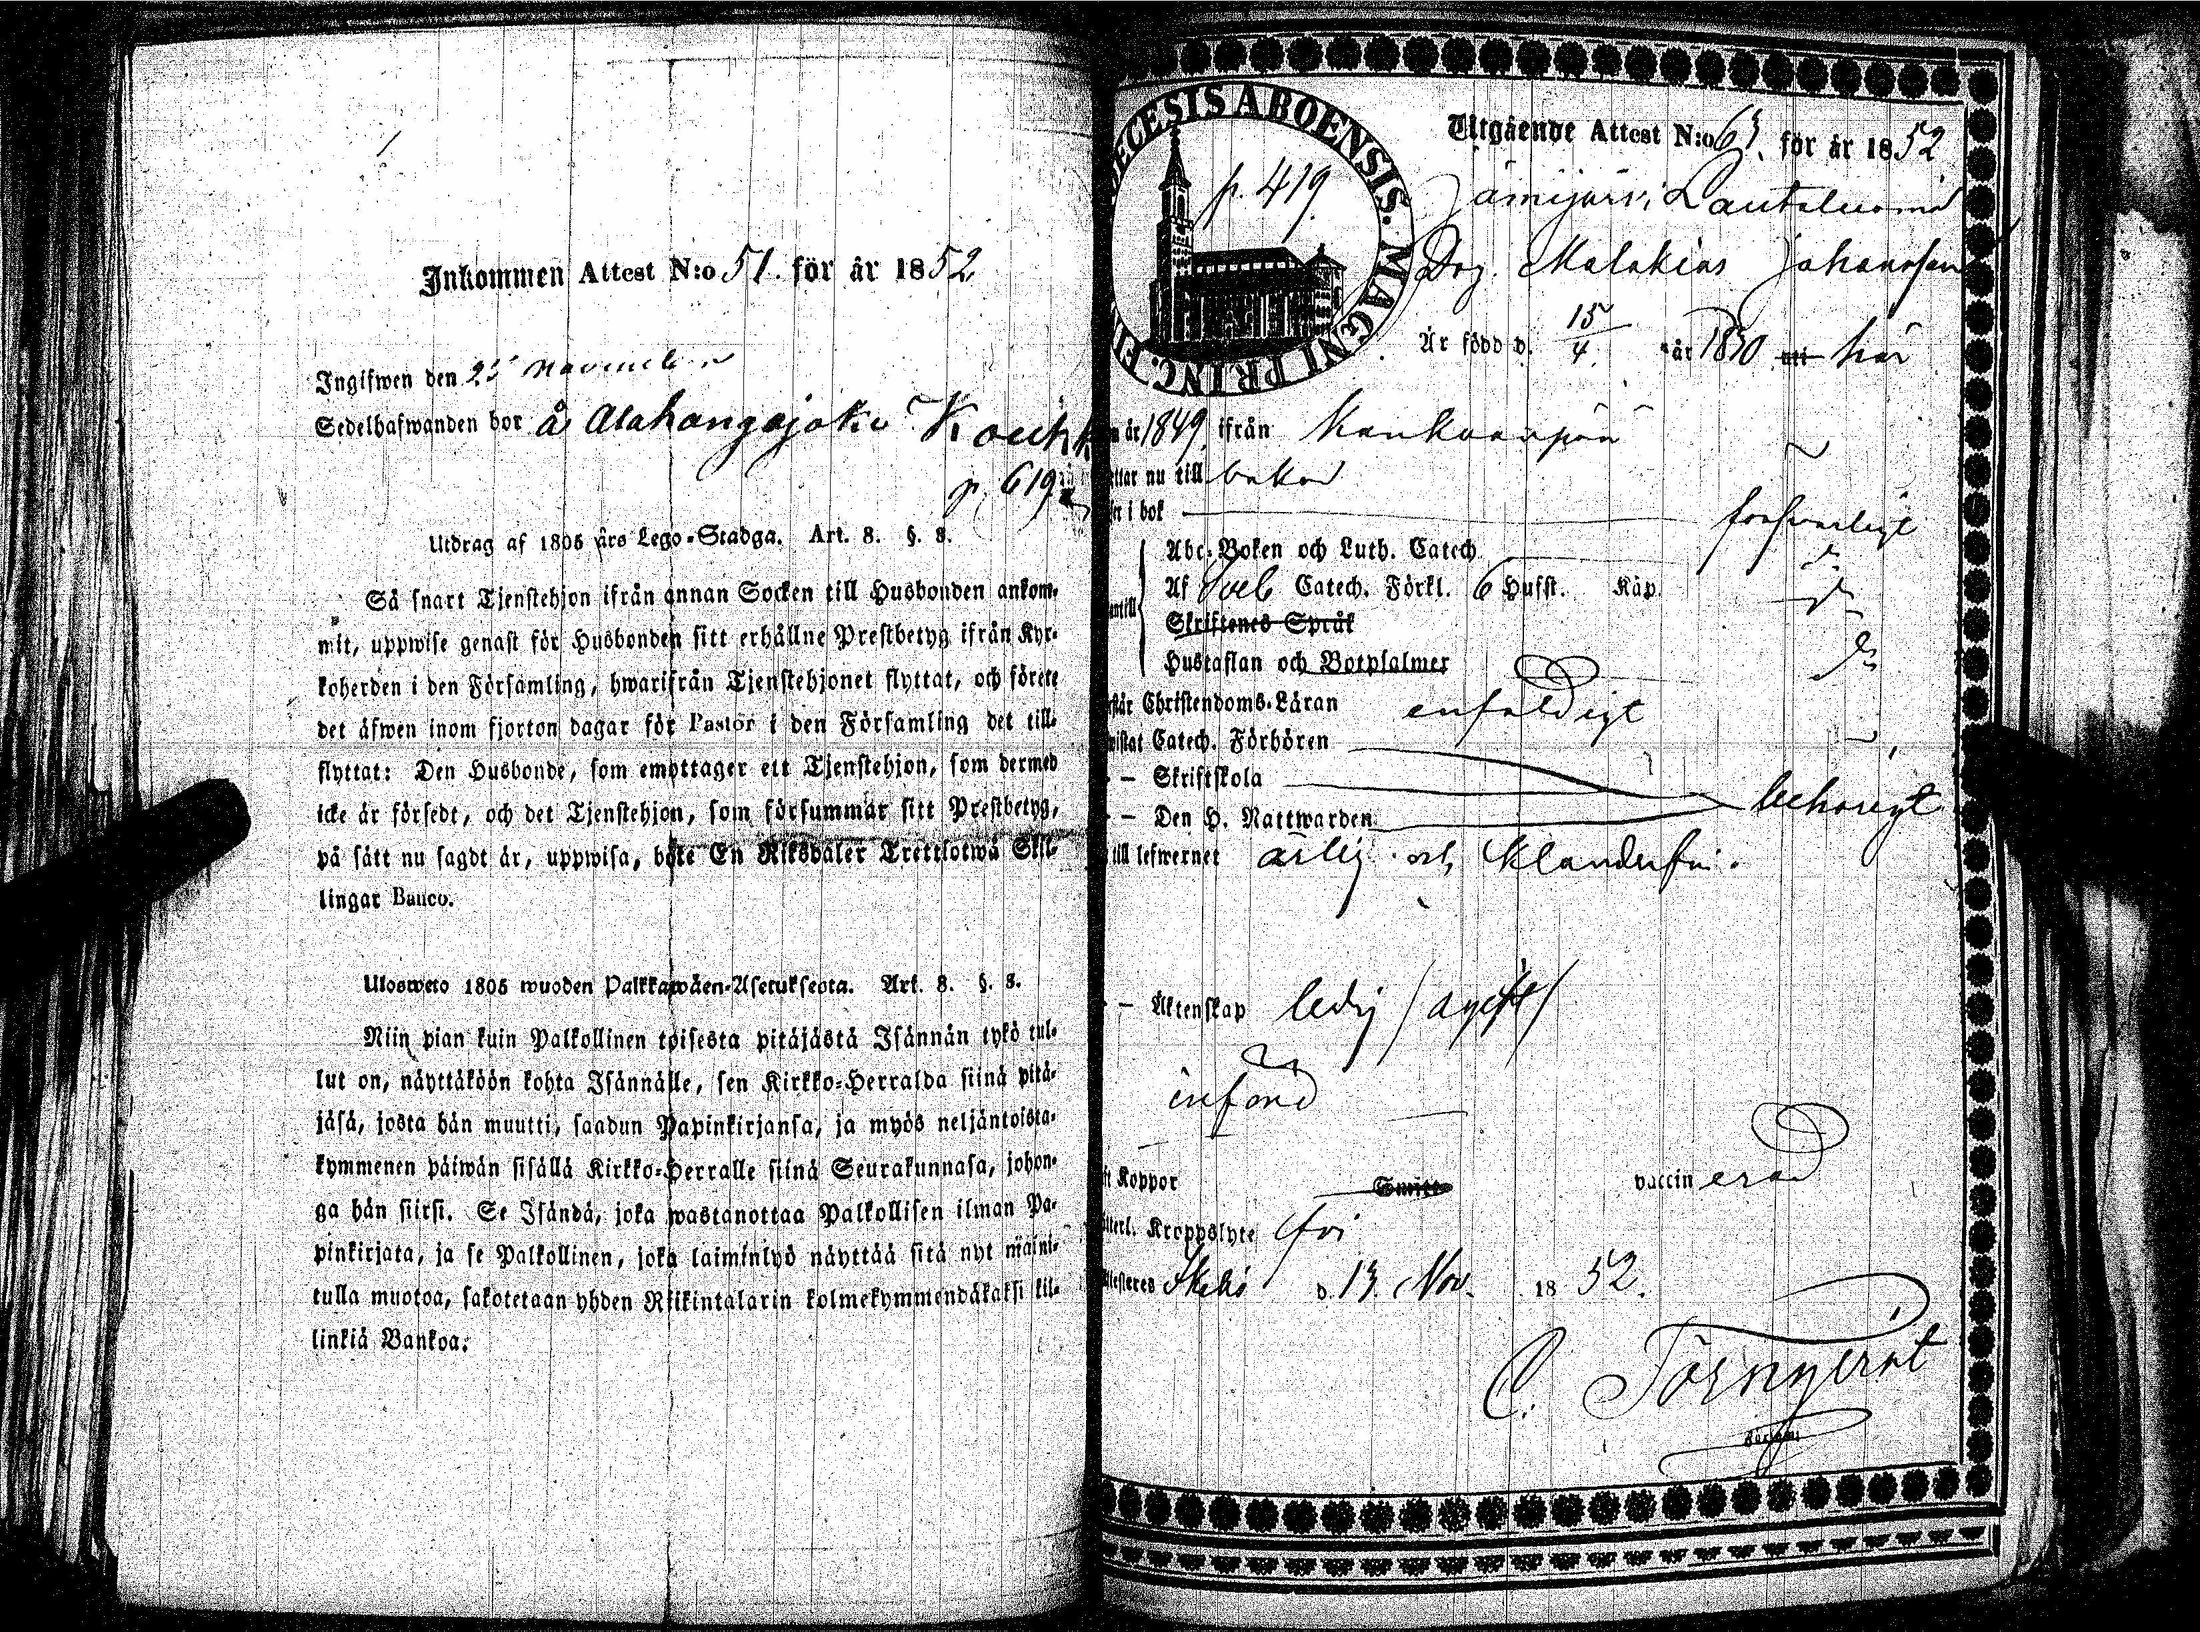 Inkommen Attest N:o 51. för år 1852
Ingifwen den 25 november
Sedelhafwanden bor å Alahongajoki
p. 619
Utdrag af 1805 års Lego-Stadga. Art. 8. §. 8.
Så snart Tjenstehjon ifrån annan Socken till Husbonden ankom-
mit, uppwise genast för Husbonden sitt erhållne Prestbetyg ifrån Kyr-
koherden i den Församling, hwarifrån Tjenstehjonet flyttat, och förete
det äfwen inom fjorton dagar för Pastor i den Församling det till-
flyttat: Den Husbonde, som emottager ett Tjenstehjon, som dermed
icke är försedt, och det Tjenstehjon, som försummar sitt Prestbetyg,
på sätt nu sagdt är, uppwisa, böte En Riksdaler Trettiotwå Skil-
lingar Banco.
Ulosweto 1805 wuoden Palkkawäen-Asetuksesta. Art. 8. §. 8.
Niin pian kuin Palkollinen toisesta pitäjästä Isännän tykö tul-
lut on, näyttäköön kohta Isännälle, sen Kirkko-Herralda siinä pitä-
jäsä, josta hän muutti, saadun Papinkirjansa, ja myös neljäntoista-
kymmenen päiwän sisällä Kirkko-Herralle siinä Seurakunnasa, johon-
ga hän siirsi. Se Isändä, joka wastanottaa Palkollisen ilman Pa-
pinkirjata, ja se Palkollinen, joka laiminlyö näyttää sitä nyt maini-
tulla muotoa, sakotetaan yhden Riikintalarin kolmekymmendäkaksi kil-
linkiä Bankoa.
ECESIS ABOENSIS. MAGNI PRINC. FI
p. 419
Utgående Attest N:o 63. för år 1852
Jämijärvi, Lautaluoma
Drg. Malakias Johansson
Är född d. 15/4 år 1830 uti här
år 1849 ifrån Kankaanpää
ttar nu till
er i bok försvarligt
Abc-Boken och Luth. Catech.
Af Sveb Catech. Förkl. 6 Hufst. Kap.
Skriftenes Språk
Hustaflan och Botpsalmer
Christendoms-Läran enfaldigt
Catech. Förhören
— Skriftskola behörigt
— Den H. Nattwarden
till lefwernet ärlig och klanderfri.
— Äktenskap ledig / ogift /
infönd
Koppor vaccinerad
Kroppslyte fri
d. 13. Nov. 1852.
C. Törnqvist